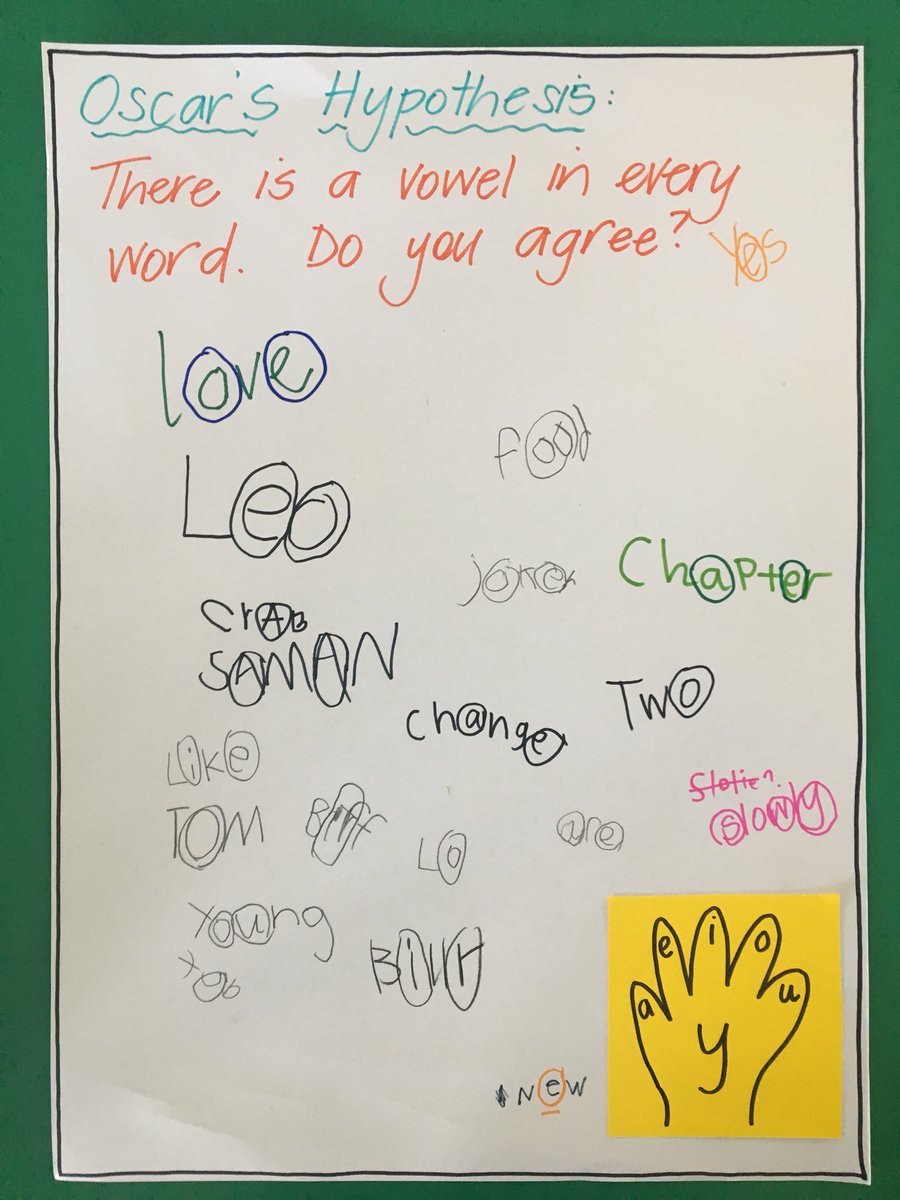 Oscar's Hypothesis:
There is a vowel in every
word. Do you agree?
Yes
love
food
Leo
joker
Chapter
CrAB
SAMAN
Two
change
Like
Slowly
TOM
Lo
are
young
New
a e i o u
y